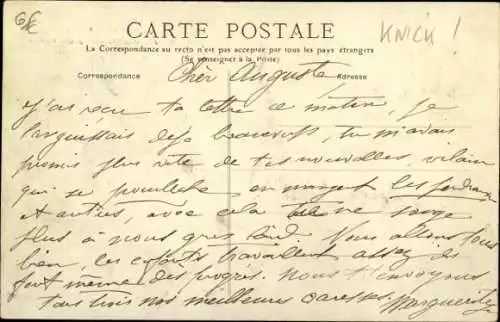 6€
KNICK !
CARTE POSTALE
La Correspondance au recto n'est pas acceptée par tous les pays étrangers
(Se renseigner à la Poste)
Correspondance
Adresse
Cher Auguste,
J'ai reçu ta lettre ce matin, je
languissais déjà beaucoup, tu m'avais
promis plus vite de tes nouvelles, vilain
qui se pourlèche en mangeant les
et autres, avec cela ne songe
plus à nous Nous allons tous
bien, les enfants travaillent assez ils
font même des progrès. Nous t'envoyons
tous trois nos meilleures caresses. Marguerite